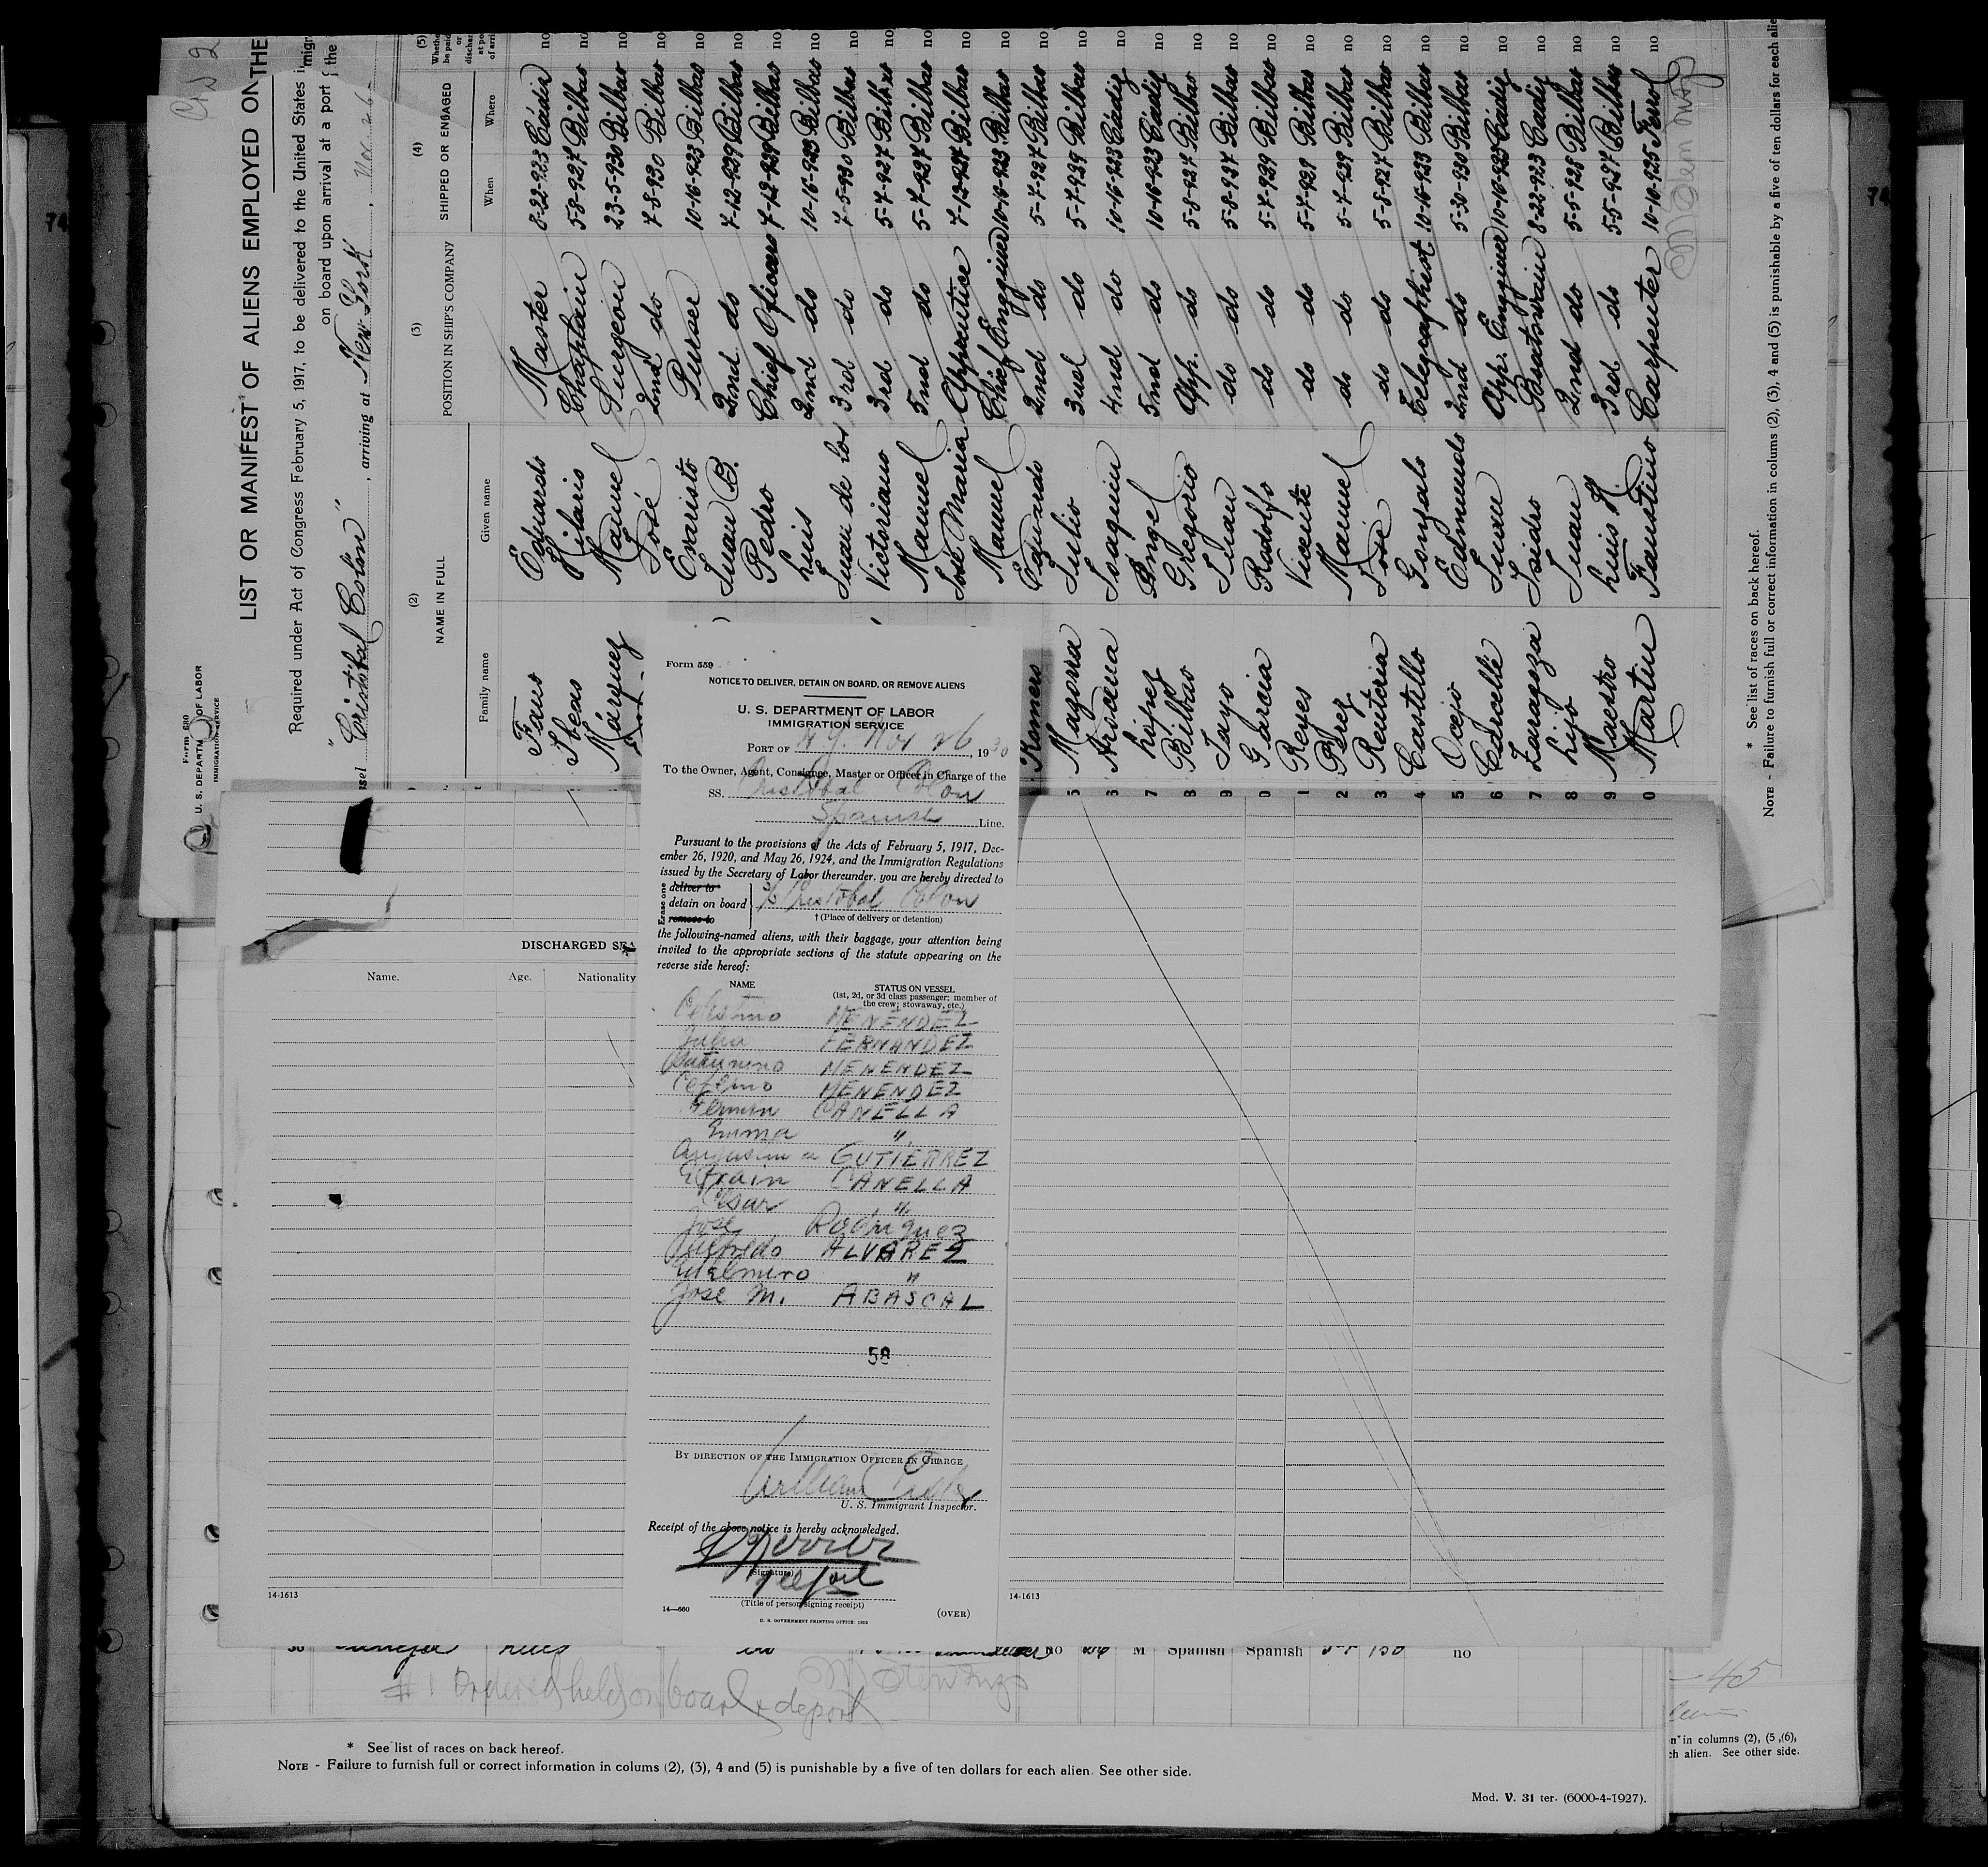 Form 680
U. S. DEPARTMENT OF LABOR
IMMIGRATION SERVICE
LIST OR MANIFEST OF ALIENS EMPLOYED ON THE
Required under Act of Congress February 5, 1917, to be delivered to the United States
on board upon arrival at a port
"Cristóbal Colón", arriving at New-York, Nov. 26
(2)
NAME IN FULL
(3)
POSITION IN SHIP'S COMPANY
(4)
SHIPPED OR ENGAGED
(5)
Family name Given name When Where
Fano Eduardo Master 8-22-923 Cádiz no
Hilario Chaplain 5-8-927 Bilbao no
Márquez Manuel Surgeon 23-5-930 Bilbao no
José 2nd do 7-8-930 Bilbao no
Evaristo Purser 10-16-923 Bilbao no
Juan B. 2nd do 7-12-929 Bilbao no
Pedro Chief Oficcers 7-12-929 Bilbao no
Luis 2nd do 10-16-923 Bilbao no
Juan de los 3rd do 7-5-930 Bilbao no
Victoriano 3rd do 5-7-927 Bilbao no
Manuel 5nd do 5-7-927 Bilbao no
José Maria Apprentice 7-12-927 Bilbao no
Manuel Chief Engginer 10-16-923 Bilbao no
Romero Eduardo 2nd do 5-7-927 Bilbao no
Magorra Julio 3nd do 5-7-929 Bilbao no
Joaquin 4nd do 10-16-923 Cádiz no
López Angel 5nd do 10-16-923 Cádiz no
Bilbao Gregorio App. do 5-8-927 Bilbao no
Tayo Juan do do 5-8-927 Bilbao no
Garcia Rodolfo do do 5-7-929 Bilbao no
Reyes Vicente do do 5-7-929 Bilbao no
Pérez Manuel do do 5-7-929 Bilbao no
Renteria José do do 5-8-927 Bilbao no
Castillo Gonzalo Telegraphist 10-16-923 Bilbao no
Ocejo Edmundo 2nd do 5-30-930 Bilbao no
Carcellé Juan App. Engginer 10-16-923 Cádiz no
Zaragoza Isidro Boatswain 8-22-923 Cádiz no
Lijo Juan 2nd do 5-5-928 Bilbao no
Maestro Luis R. 3rd do 5-5-927 Bilbao no
Martin Faustino Carpenter 10-10-925 Ferrol no
* See list of races on back hereof.
NOTE - Failure to furnish full or correct information in colums (2), (3), 4 and (5) is punishable by a five of ten dollars for each alie
DISCHARGED SEA
Name. Age. Nationality
14-1613
Form 559
NOTICE TO DELIVER, DETAIN ON BOARD, OR REMOVE ALIENS
U. S. DEPARTMENT OF LABOR
IMMIGRATION SERVICE
PORT OF N.Y. Nov 26, 1930
To the Owner, Agent, Consignee, Master or Officer in Charge of the
SS. Cristobal Colon
Spanish Line.
Pursuant to the provisions of the Acts of February 5, 1917, Dec-
ember 26, 1920, and May 26, 1924, and the Immigration Regulations
issued by the Secretary of Labor thereunder, you are hereby directed to
Erase one
deliver to
detain on board
remove to
S/S Cristobal Colon
† (Place of delivery or detention)
the following-named aliens, with their baggage, your attention being
invited to the appropriate sections of the statute appearing on the
reverse side hereof:
NAME STATUS ON VESSEL
(1st, 2d, or 3d class passenger; member of
the crew; stowaway, etc.)
Celestino MENENDEZ
Julia FERNANDEZ
Saturnino MENENDEZ
Cefelmo MENENDEZ
Fermin CANELLA
Emma "
GUTIERREZ
Efrain CANELLA
Cesar "
Jose Rodriguez
Wilfredo ALVAREZ
Edelmiro "
Jose M. ABASCAL
58
BY DIRECTION OF THE IMMIGRATION OFFICER IN CHARGE
William
U. S. Immigrant Inspector.
Receipt of the above notice is hereby acknowledged.
(Signature)
(Title of person signing receipt)
14-660
(OVER)
U. S. GOVERNMENT PRINTING OFFICE: 1929
14-1613
no 26 M Spanish Spanish 5-7 150 no
#1 Ordered held on board & deport
* See list of races on back hereof.
NOTE - Failure to furnish full or correct information in colums (2), (3), 4 and (5) is punishable by a five of ten dollars for each alien. See other side.
Mod. V. 31 ter. (6000-4-1927).
45
n" in columns (2), (5 ,(6),
ch alien. See other side.